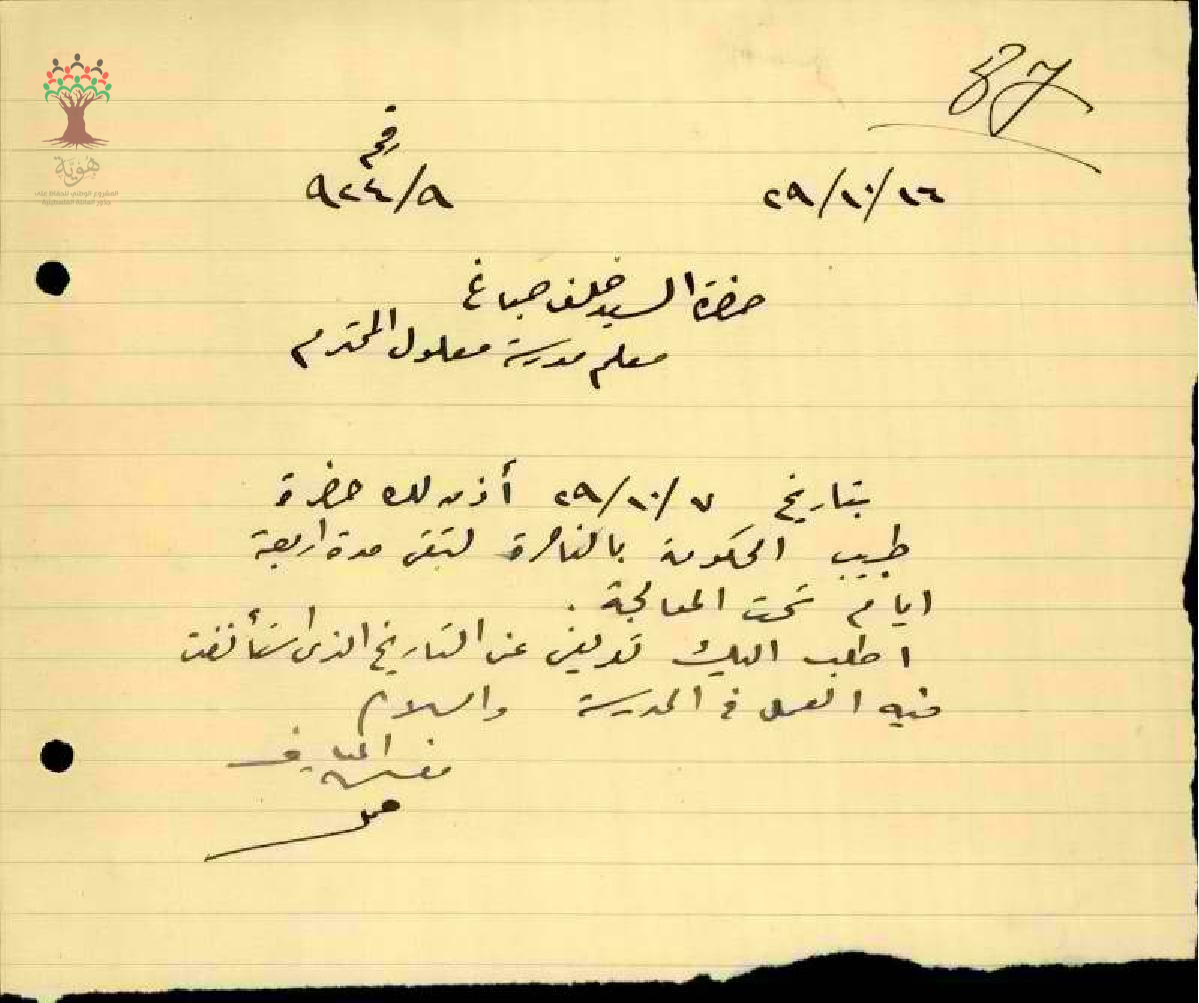 37
رقم
٩٢٤/٩
٢٩/١٠/١٦
حضرة السيد خلف صباغ
معلم مدرسة معلول المحترم
بتاريخ ٢٩/١٠/٧ أذن لك حضرة
طبيب الحكومة بالناصرة لتبقى مدة اربعة
ايام تحت المعالجة .
اطلب اليك تعريفي عن التاريخ الذي استأنفت
فيه العمل في المدرسة والسلام
مفتش المعارف
هُوِيَّة
المشروع الوطني للحفاظ على
جذور العائلة الفلسطينية